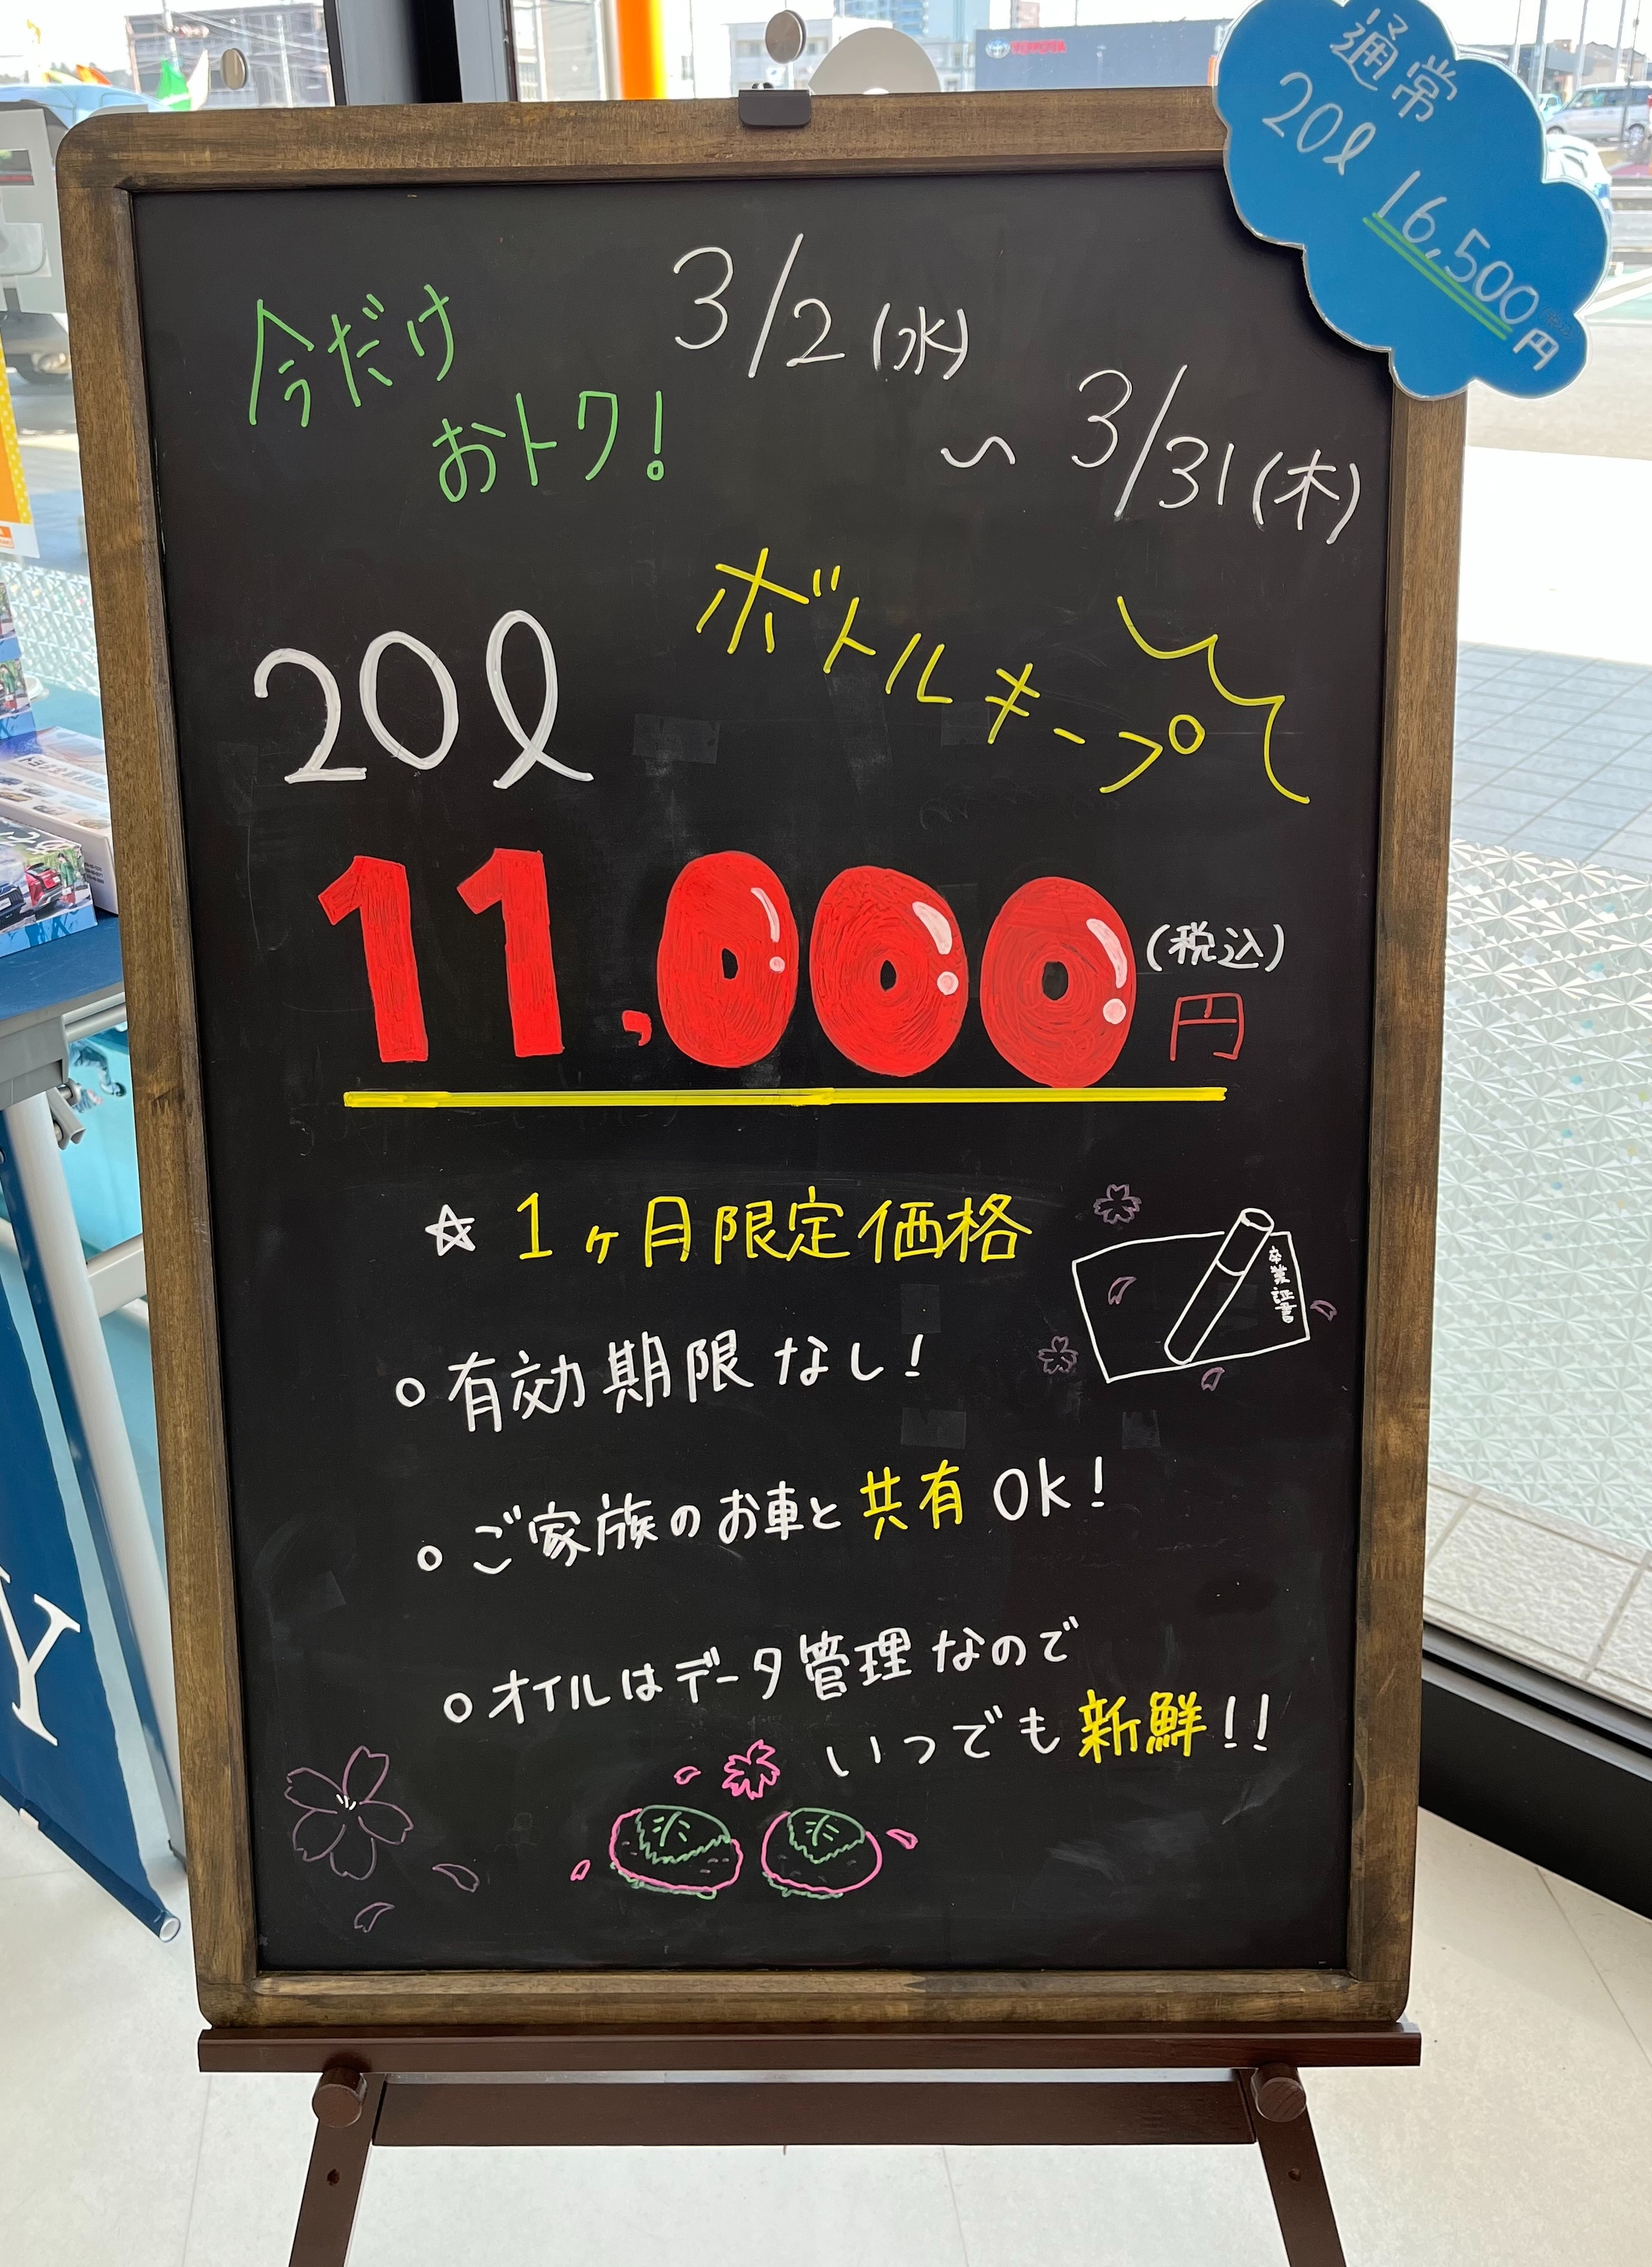 TOYOTA
通常
20ℓ
16,500円
今だけ
おトク!
3/2(水)
~3/31(木)
ボトルキープ
20ℓ
11,000円(税込)
☆1ヶ月限定価格
卒業証書
○有効期限なし!
○ご家族のお車と共有OK!
○オイルはデータ管理なので
いつでも新鮮!!
Y